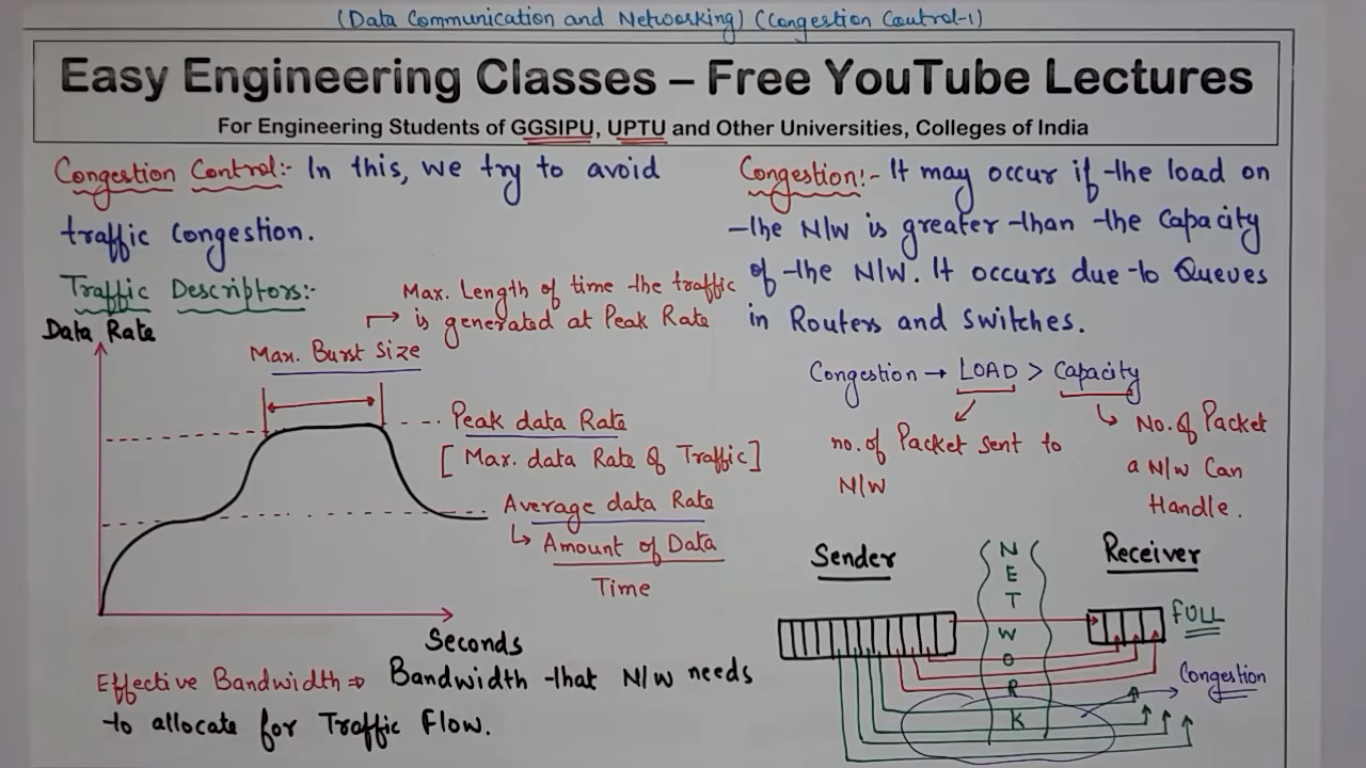 (Data Communication and Networking) (Congestion Control-1)
Easy Engineering Classes – Free YouTube Lectures
For Engineering Students of GGSIPU, UPTU and Other Universities, Colleges of India
Congestion Control:- In this, we try to avoid
traffic Congestion.
Traffic Descriptors:-
Max. Length of time the traffic
is generated at Peak Rate
Data Rate
Max. Burst Size
Peak data Rate
[Max. data Rate of Traffic]
Average data Rate
Amount of Data
Time
Seconds
Effective Bandwidth ⇒ Bandwidth that N/w needs
to allocate for Traffic Flow.
Congestion:- It may occur if the load on
the N/w is greater than the Capacity
of the N/w. It occurs due to Queues
in Routers and Switches.
Congestion → LOAD > Capacity
no. of Packet sent to
N/w
No. of Packet
a N/w Can
Handle.
Sender
NETWORK
Receiver
FULL
Congestion